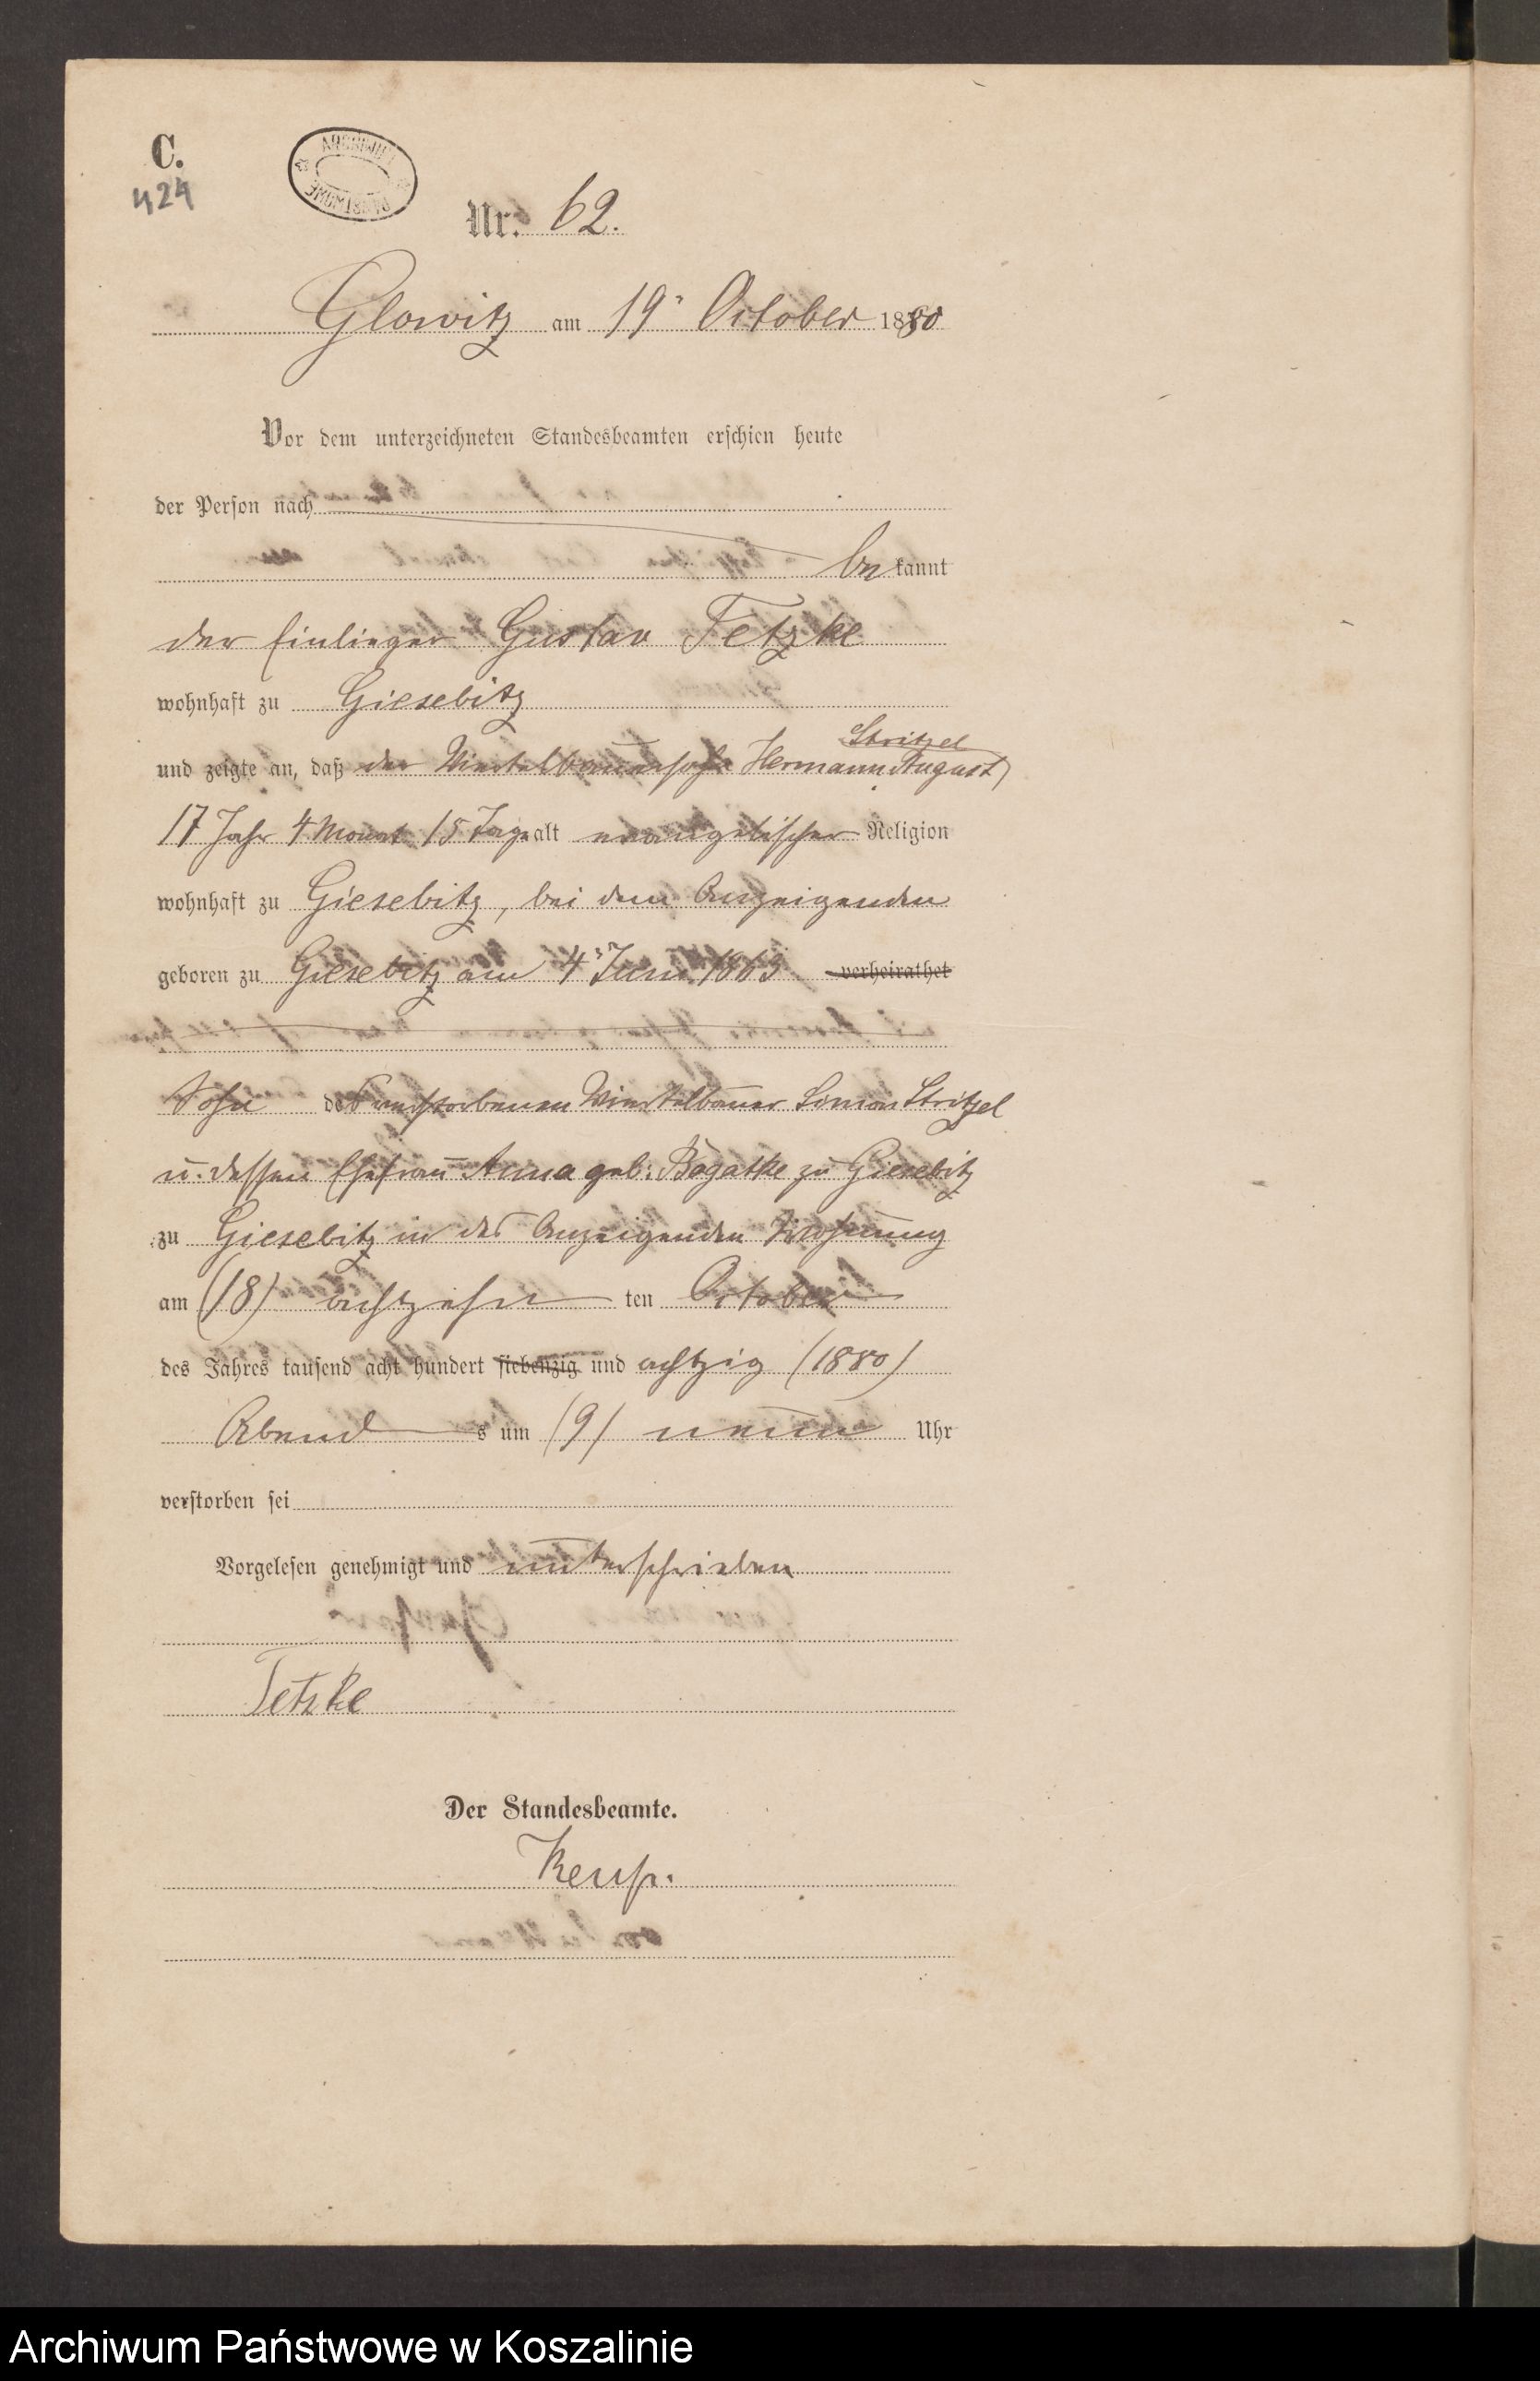 C.
424
ARCHIWUM PAŃSTWOWE
Nr. 62.
Glowitz am 19ᵗ October 1880
Vor dem unterzeichneten Standesbeamten erschien heute
der Person nach
be kannt
der Einlieger Gustav Tetzke
wohnhaft zu Giesebitz
Stritzel
und zeigte an, daß der Viertelbauersohn Hermann August
17 Jahr 4 Monat 15 Tage alt evangelischer Religion
wohnhaft zu Giesebitz, bei dem Anzeigenden
geboren zu Giesebitz am 4ᵗ Juni 1863 verheirathet
Sohn des verstorbenen Viertelbauer Simon Stritzel
u. dessen Ehefrau Anna geb: Bogatke zu Giesebitz
zu Giesebitz in des Anzeigenden Wohnung
am (18) achtzehn ten October
des Jahres tausend acht hundert siebenzig und achtzig (1880)
Abend s um (9) neun Uhr
verstorben sei
Vorgelesen genehmigt und unterschrieben
Tetzke
Der Standesbeamte.
Archiwum Państwowe w Koszalinie